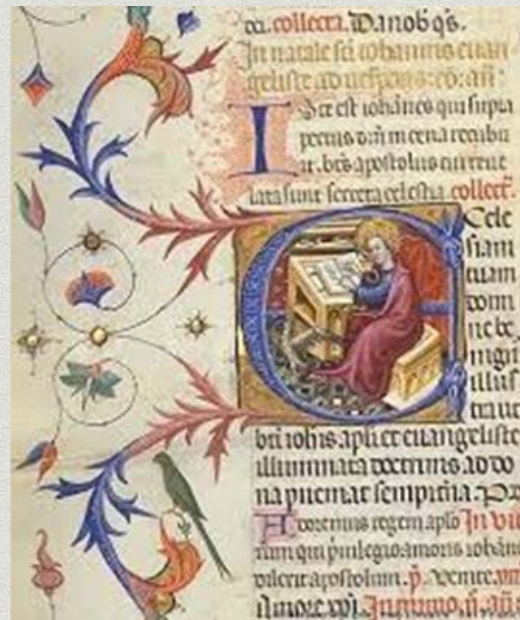 da. collecta. Da nob' q's.
In natale sci iohannis euan
geliste ad uesperas. ad: añ:
Iste est iohānes qui supra
pectus dñi in cena recubu
it. bt's apostolus cui reue
lata sunt secreta celestia. collect'.
Eccle
siam
tuam
domi
ne be
nigñ
illus
tra ut
bti iohis apli et euangeliste
illuminata doctrinis. ad do
na pueniat sempit'na. P
Adoremus regem apło In
rum qui p'uilegio amoris iohañ
dilexit apostolum. p'. Venite.